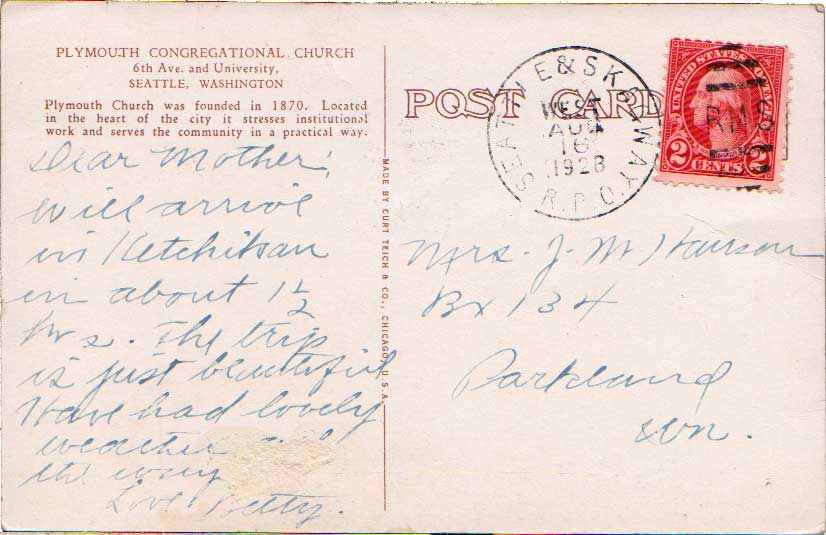 PLYMOUTH CONGREGATIONAL CHURCH
6th Ave. and University,
SEATTLE, WASHINGTON
Plymouth Church was founded in 1870. Located
in the heart of the city it stresses institutional
work and serves the community in a practical way.
Dear Mother,
Will arrive
in Ketchikan
in about 1 1/2
hrs. The trip
is just beautiful
Have had lovely
weather
the way
Love Betty.
MADE BY CURT TEICH & CO., CHICAGO, U.S.A.
POST CARD
SEATTLE & SKAGWAY
WEST
AUG
16
1928
R.P.O.
UNITED STATES POSTAGE
2 CENTS 2
Mrs. J. M. Hanson
Bx 134
Parkland
Wn.